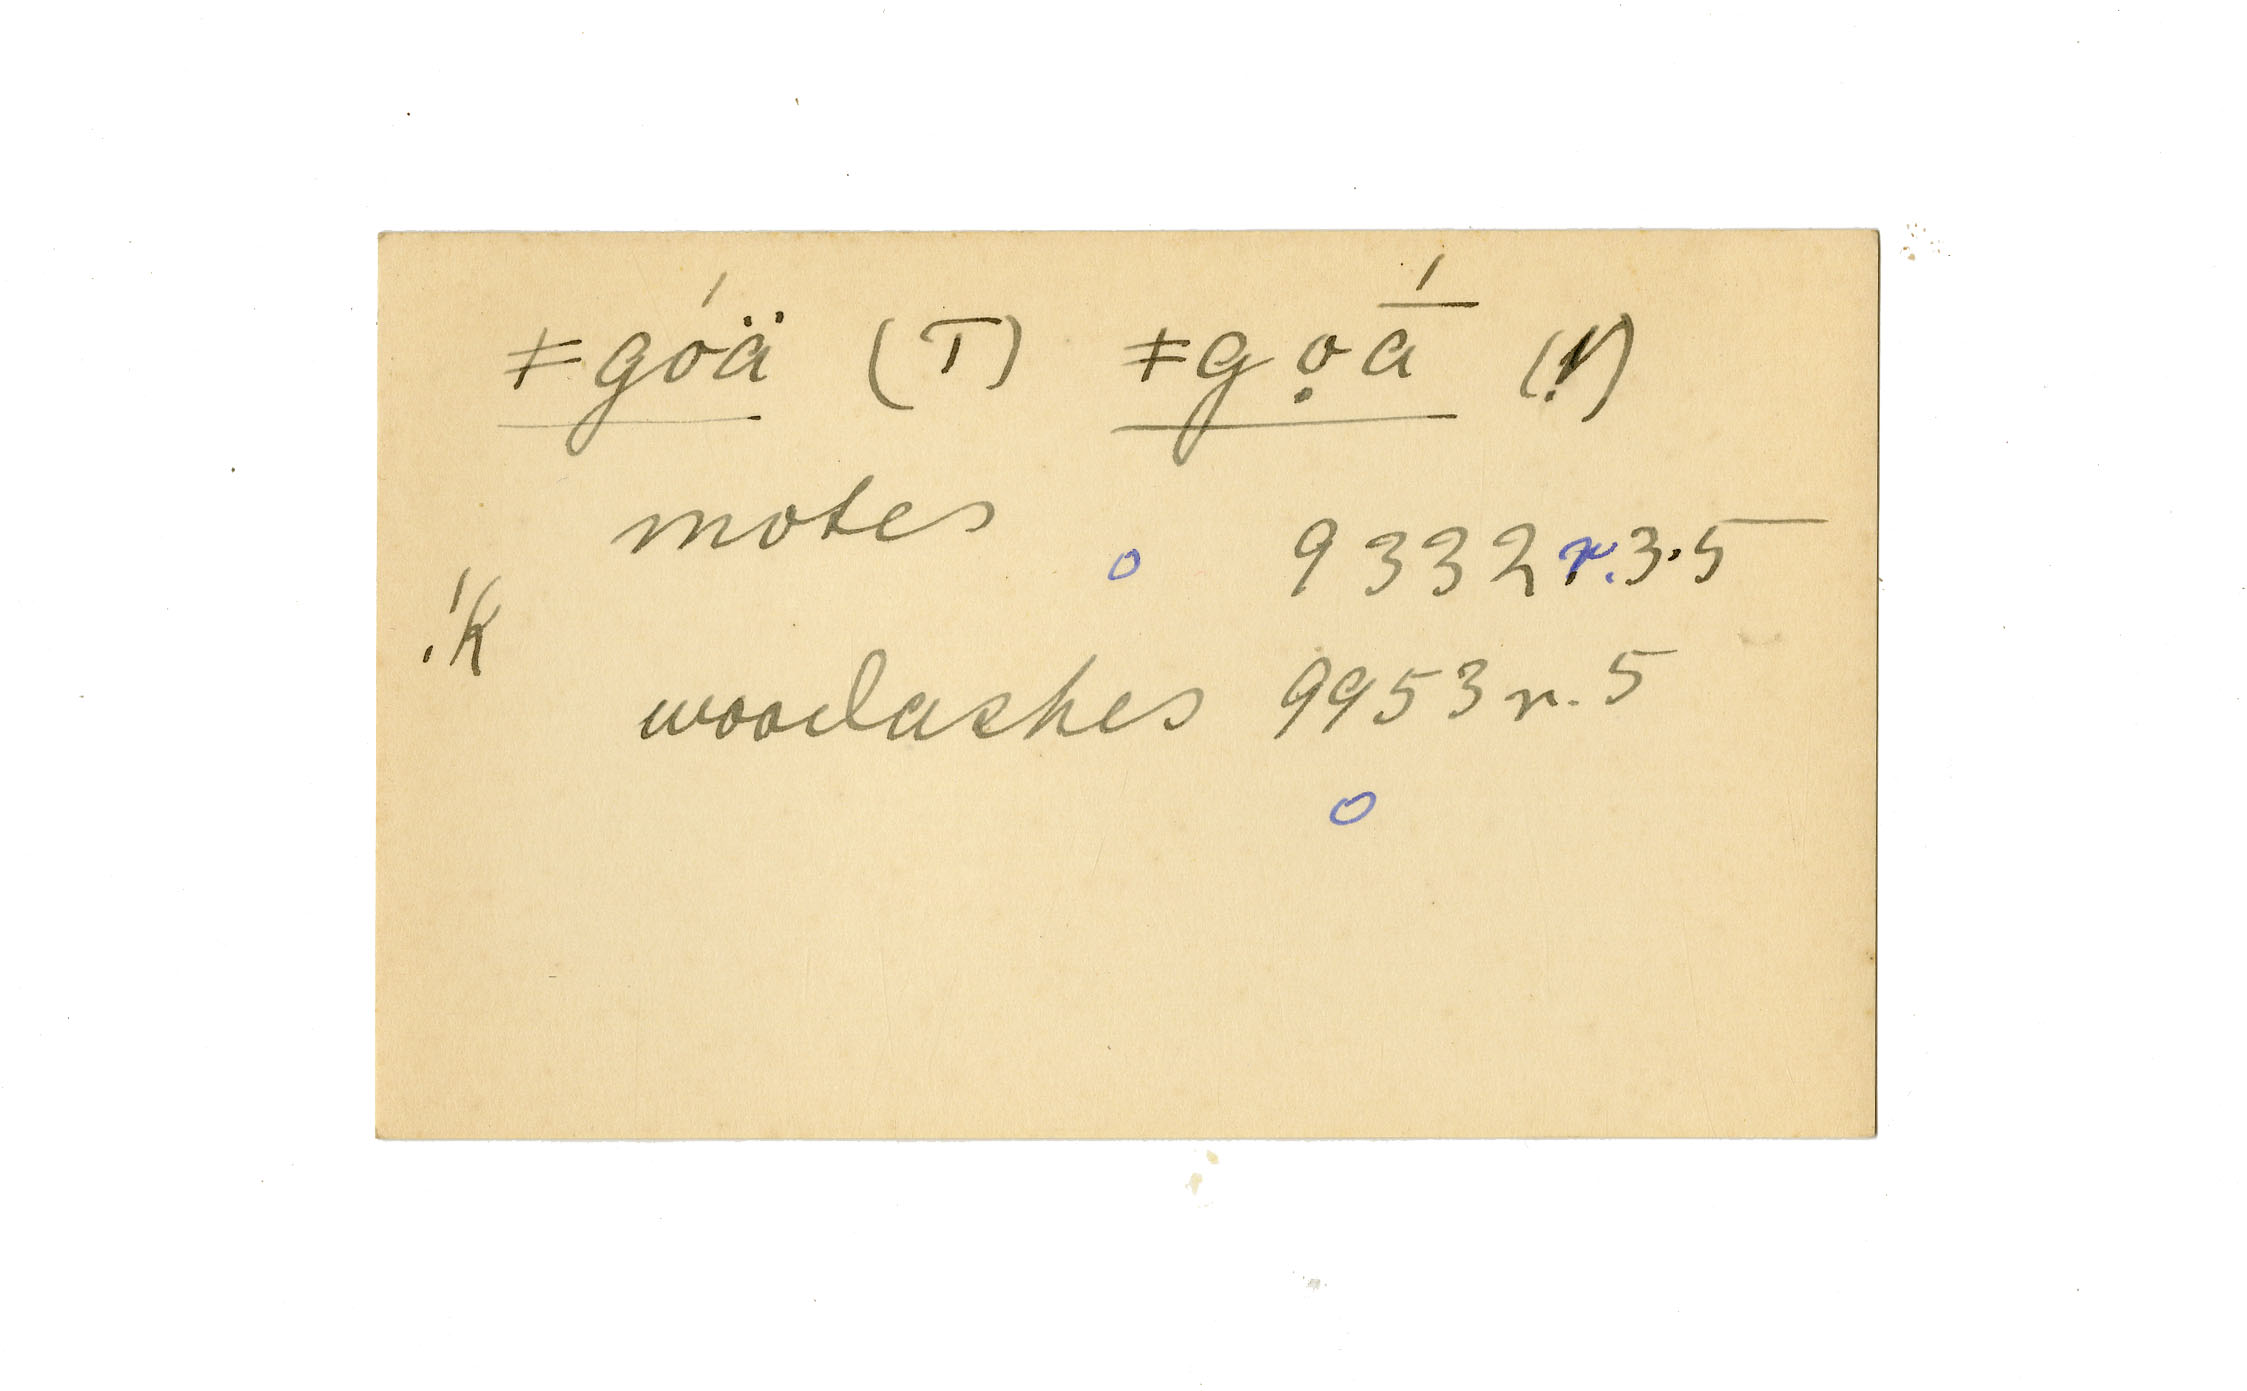 ǂgóä (T) ǂgọā́ (N)
motes o 9332 r. 3.5
!k
woodashes 9953 r. 5
o